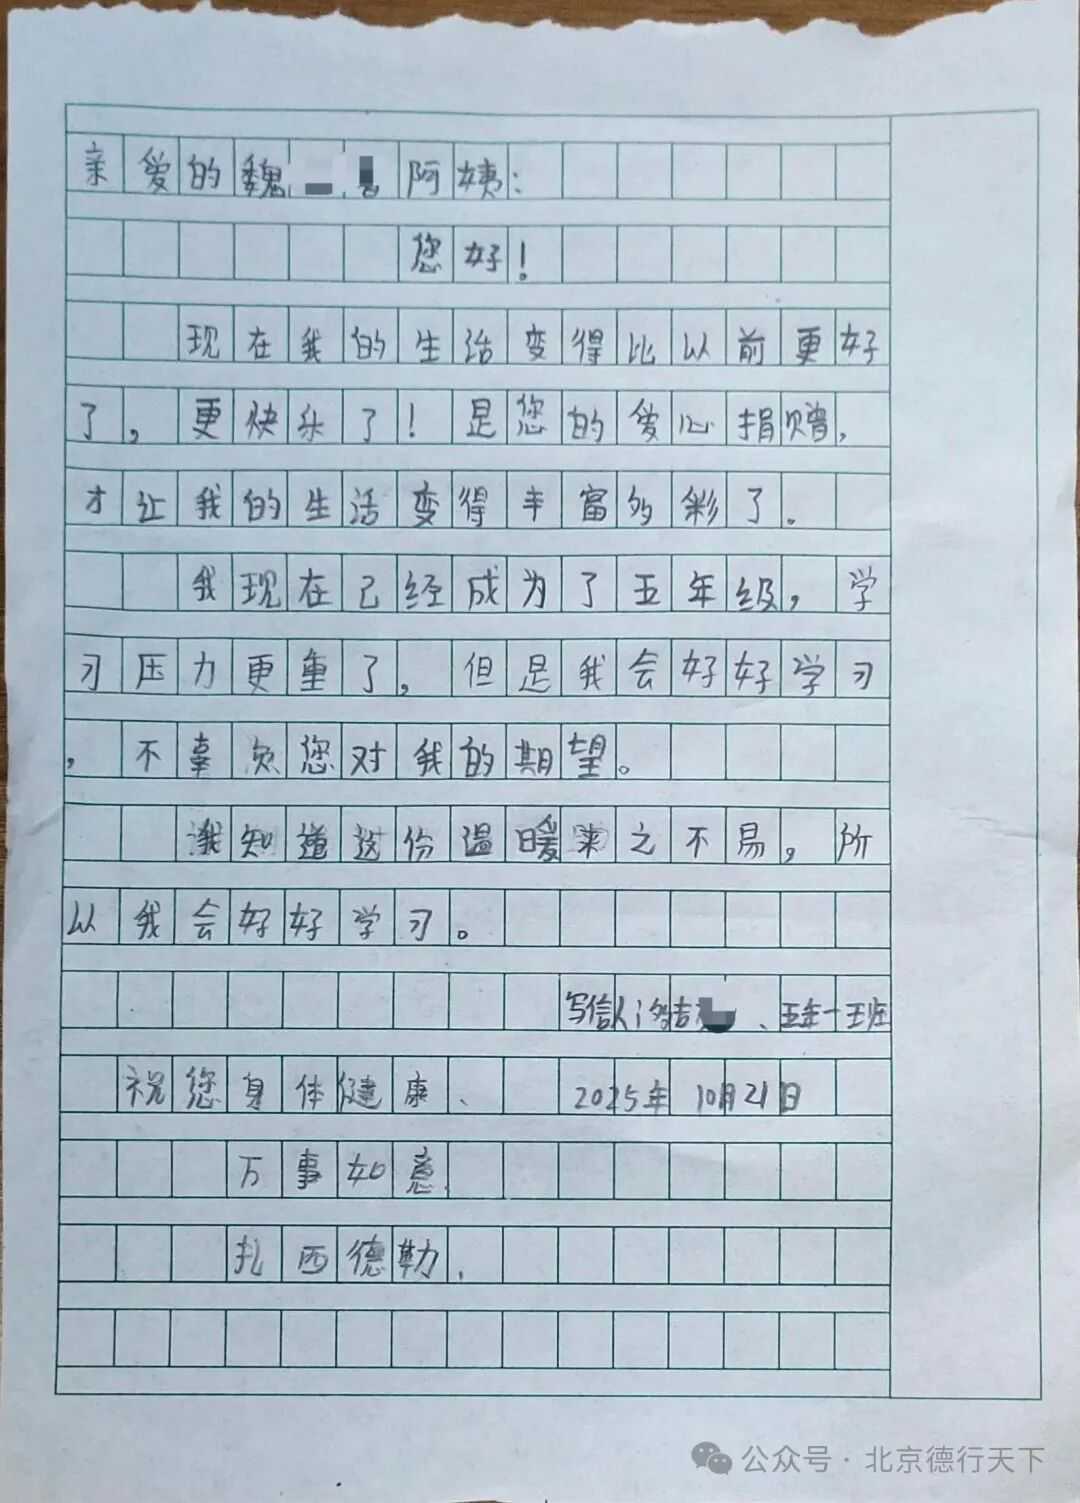 亲爱的魏 阿姨：
您好！
现在我的生活变得比以前更好
了，更快乐了！是您的爱心捐赠，
才让我的生活变得丰富多彩了。
我现在已经成为了五年级，学
习压力更重了，但是我会好好学习
，不辜负您对我的期望。
我知道这份温暖来之不易，所
以我会好好学习。
写信人：多吉 、五年一班
祝您身体健康、 2025年10月21日
万事如意、
扎西德勒、
公众号·北京德行天下